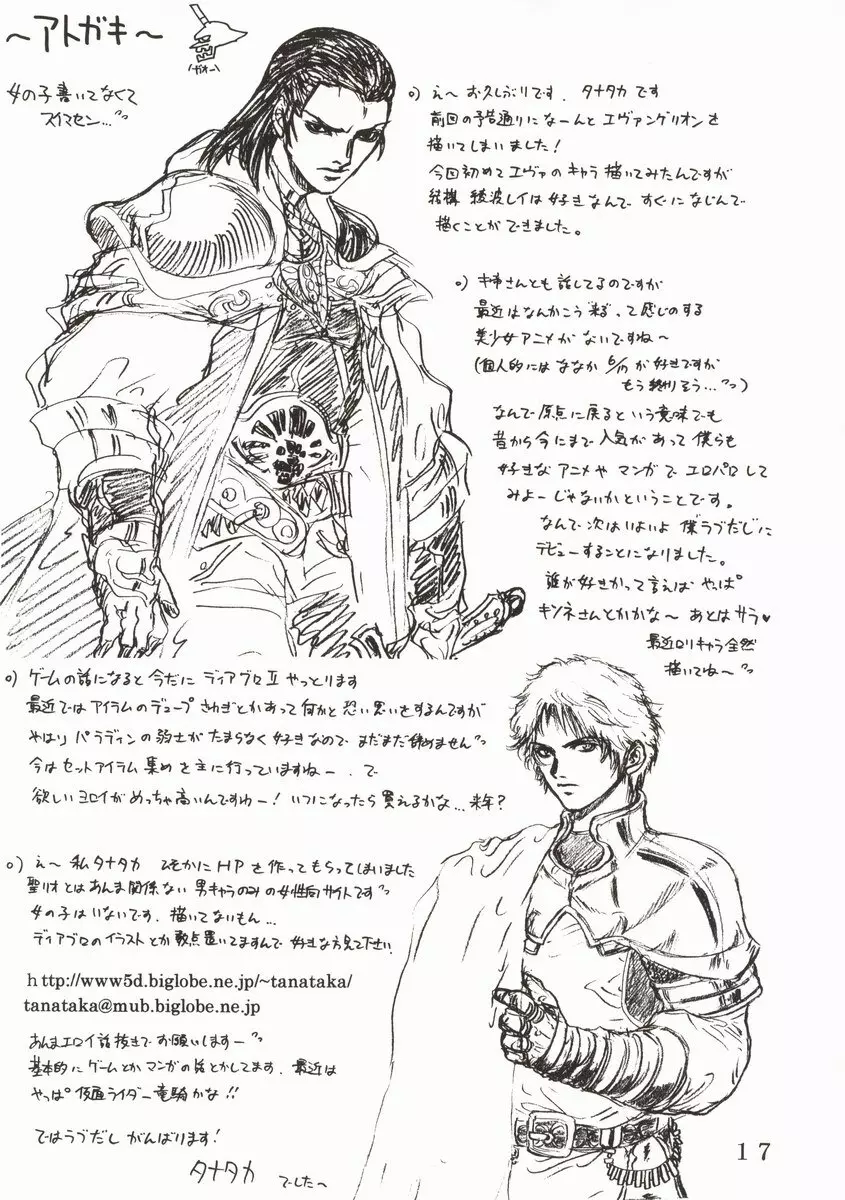 ～アトガキ～
(ガオー)
女の子書いてなくて
スイマセン…
○) え～ お久しぶりです、タナタカです
前回の予告通りになーんとエヴァンゲリオンを
描いてしまいました!
今回初めてエヴァのキャラ描いてみたんですが
結構 綾波レイは好きなんで すぐになじんで
描くことができました。
○) 姉さんとも話してるのですが
最近はなんかこう"来る"って感じのする
美少女アニメがないですね～
(個人的にはななか6/17が好きですが
もう終りそう…)
なんで原点に戻るという意味でも
昔から今にまで人気があって僕らも
好きなアニメやマンガでエロパロして
みよーじゃないかということです。
なんで次はいよいよ僕ラブだしに
デビューすることになりました。
誰が好きかって言えば やっぱ
キツネさんとかかな～ あとはサラ♥
最近ロリキャラ全然
描いてね～
○) ゲームの話になると今だに ディアブロⅡ やっとります
最近ではアイテムのデュープさわぎとかあって何かと恐い思いをするんですが
やはり パラディンの勇士がたまらなく好きなので まだまだ諦めません
今はセットアイテム集めを主に行っていますねー、で
欲しいヨロイがめっちゃ高いんですわー! いつになったら買えるかな…来年?
○) え～ 私タナタカ ひそかにHPを作ってもらってしまいました
聖リオとはあんま関係ない男キャラのみの女性向サイトです
女の子はいないです、描いてないもん…
ディアブロのイラストとか数点置いてますんで 好きな方見て下さい
http://www5d.biglobe.ne.jp/~tanataka/
tanataka@mub.biglobe.ne.jp
あんまエロイ話抜きでお願いしますー
基本的にゲームとかマンガの話とかしてます、最近は
やっぱ仮面ライダー竜騎かな!!
ではラブだし がんばります!
タナタカ でした～
17